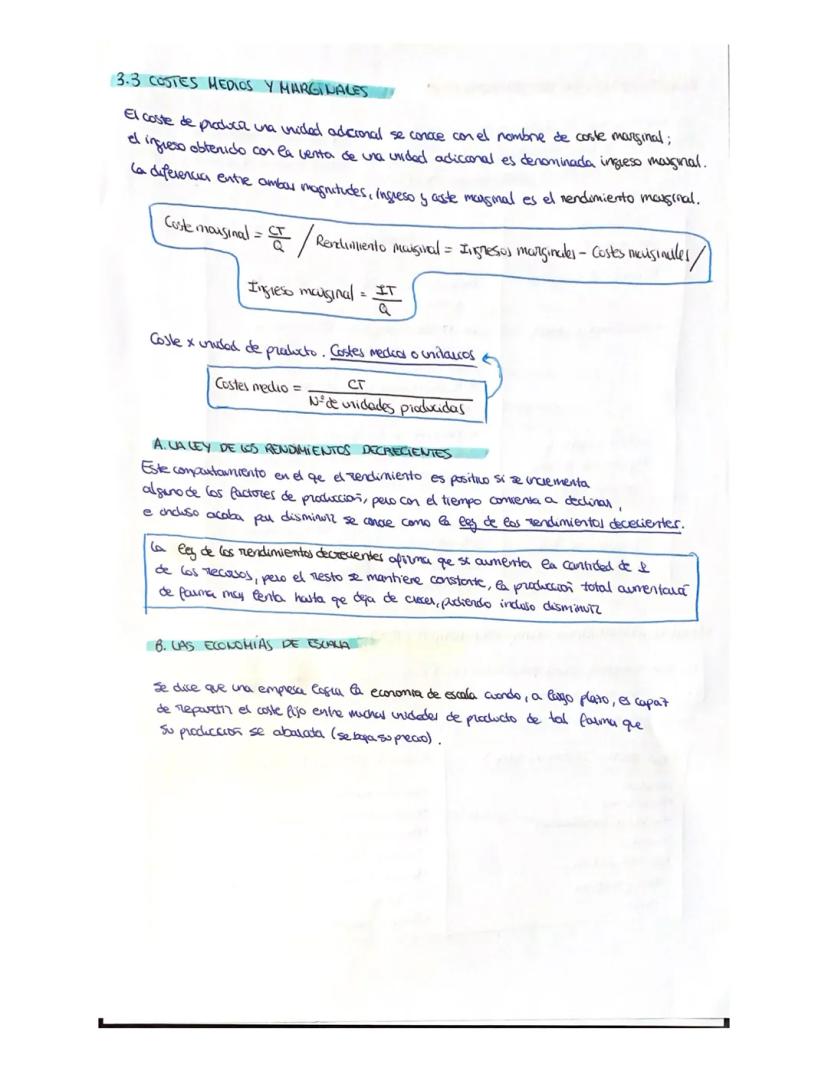 3.3 COSTES MEDIOS Y MARGINALES
El coste de producir una unidad adicional se conoce con el nombre de coste marginal;
el ingreso obtenido con la venta de una unidad adiccional es denominada ingreso marginal.
La diferencia entre ambas magnitudes, ingreso y coste marginal es el rendimiento marginal.
Coste marginal = CT/Q / Rendimiento marginal = Ingresos marginales - Costes marginales /
Ingreso marginal = IT/Q
Coste x unidad de producto. Costes medios o unitarios
Costes medio = CT / Nº de unidades producidas
A. LA LEY DE LOS RENDIMIENTOS DECRECIENTES
Este comportamiento en el qe el rendimiento es positivo si se incrementa
alguno de los factores de producción, pero con el tiempo comienza a declinar,
e incluso acaba por disminuir se conoce como la ley de los rendimientos dececientes.
La ley de los rendimientos decrecientes afirma que si aumenta la cantidad de 1
de los recursos, pero el resto se mantiene constante, la producción total aumentará
de forma muy lenta hasta qe deja de crecer, pudiendo incluso disminuir
B. LAS ECONOMÍAS DE ESCALA
Se dice que una empresa logra la economía de escala cuando, a largo plazo, es capaz
de repartir el coste fijo entre muchas unidades de producto de tal forma que
su producción se abarata (se baja su precio).